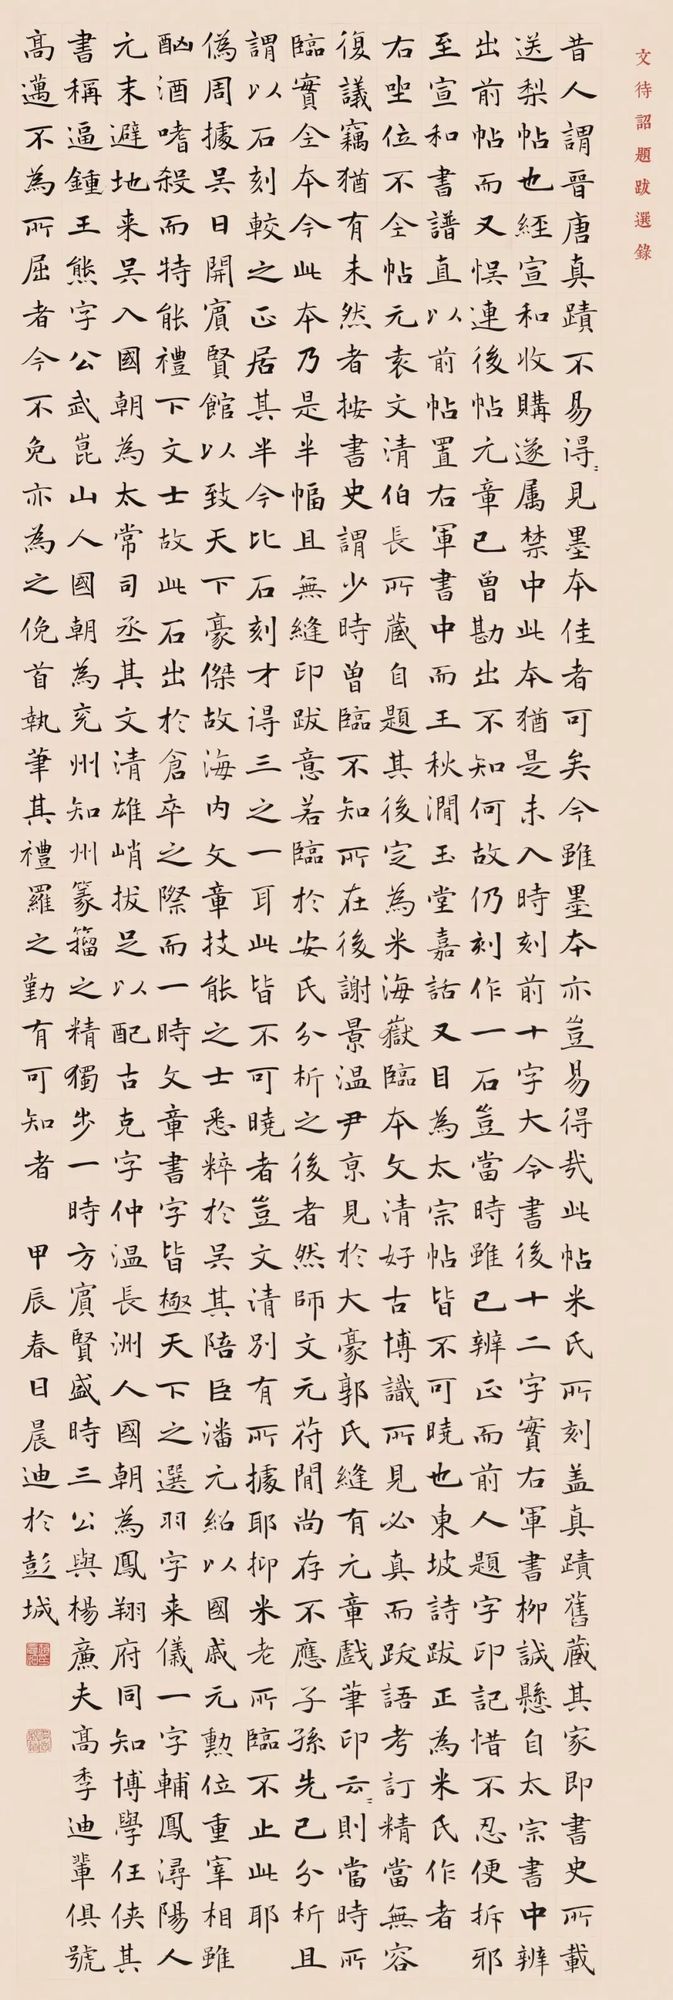 文待詔題跋選錄
昔人謂晉唐真蹟不易得=見墨本佳者可矣今雖墨本亦豈易得哉此帖米氏所刻盖真蹟舊藏其家即書史所載
送梨帖也經宣和收購遂属禁中此本猶是未入時刻前十字大令書後十二字實右軍書柳誠懸自太宗書中辨
出前帖而又悮連後帖元章已曾勘出不知何故仍刻作一石豈當時雖已辨正而前人題字印記惜不忍便拆邪
至宣和書譜直以前帖置右軍書中而王秋澗玉堂嘉話又目為太宗帖皆不可曉也東坡詩跋正為米氏作者
右㘴位不全帖元袁文清伯長所藏自題其後定為米海嶽臨本文清好古博識所見必真而跋語考訂精當無容
復議竊猶有未然者按書史謂少時曾臨不知所在後謝景温尹京見於大豪郭氏縫有元章戲筆印云=則當時所
臨實全本今此本乃是半幅且無縫印跋意若臨於安氏分析之後者然師文元苻間尚存不應子孫先已分析且
謂以石刻較之正居其半今比石刻才得三之一耳此皆不可曉者豈文清別有所據耶抑米老所臨不止此耶
偽周據吳日開賓賢館以致天下豪傑故海内文章技能之士悉粹於吳其陪臣潘元紹以國戚元勲位重宰相雖
酗酒嗜殺而特能禮下文士故此石出於倉卒之際而一時文章書字皆極天下之選羽字来儀一字輔鳳潯陽人
元末避地来吳入國朝為太常司丞其文清雄峭拔足以配古克字仲温長洲人國朝為鳳翔府同知博學任侠其
書稱逼鍾王熊字公武崑山人國朝為兖州知州篆籀之精獨步一時方賓賢盛時三公與楊廉夫高季迪輩俱號
高邁不為所屈者今不免亦為之俛首執筆其禮羅之勤有可知者 甲辰春日晨迪於彭城